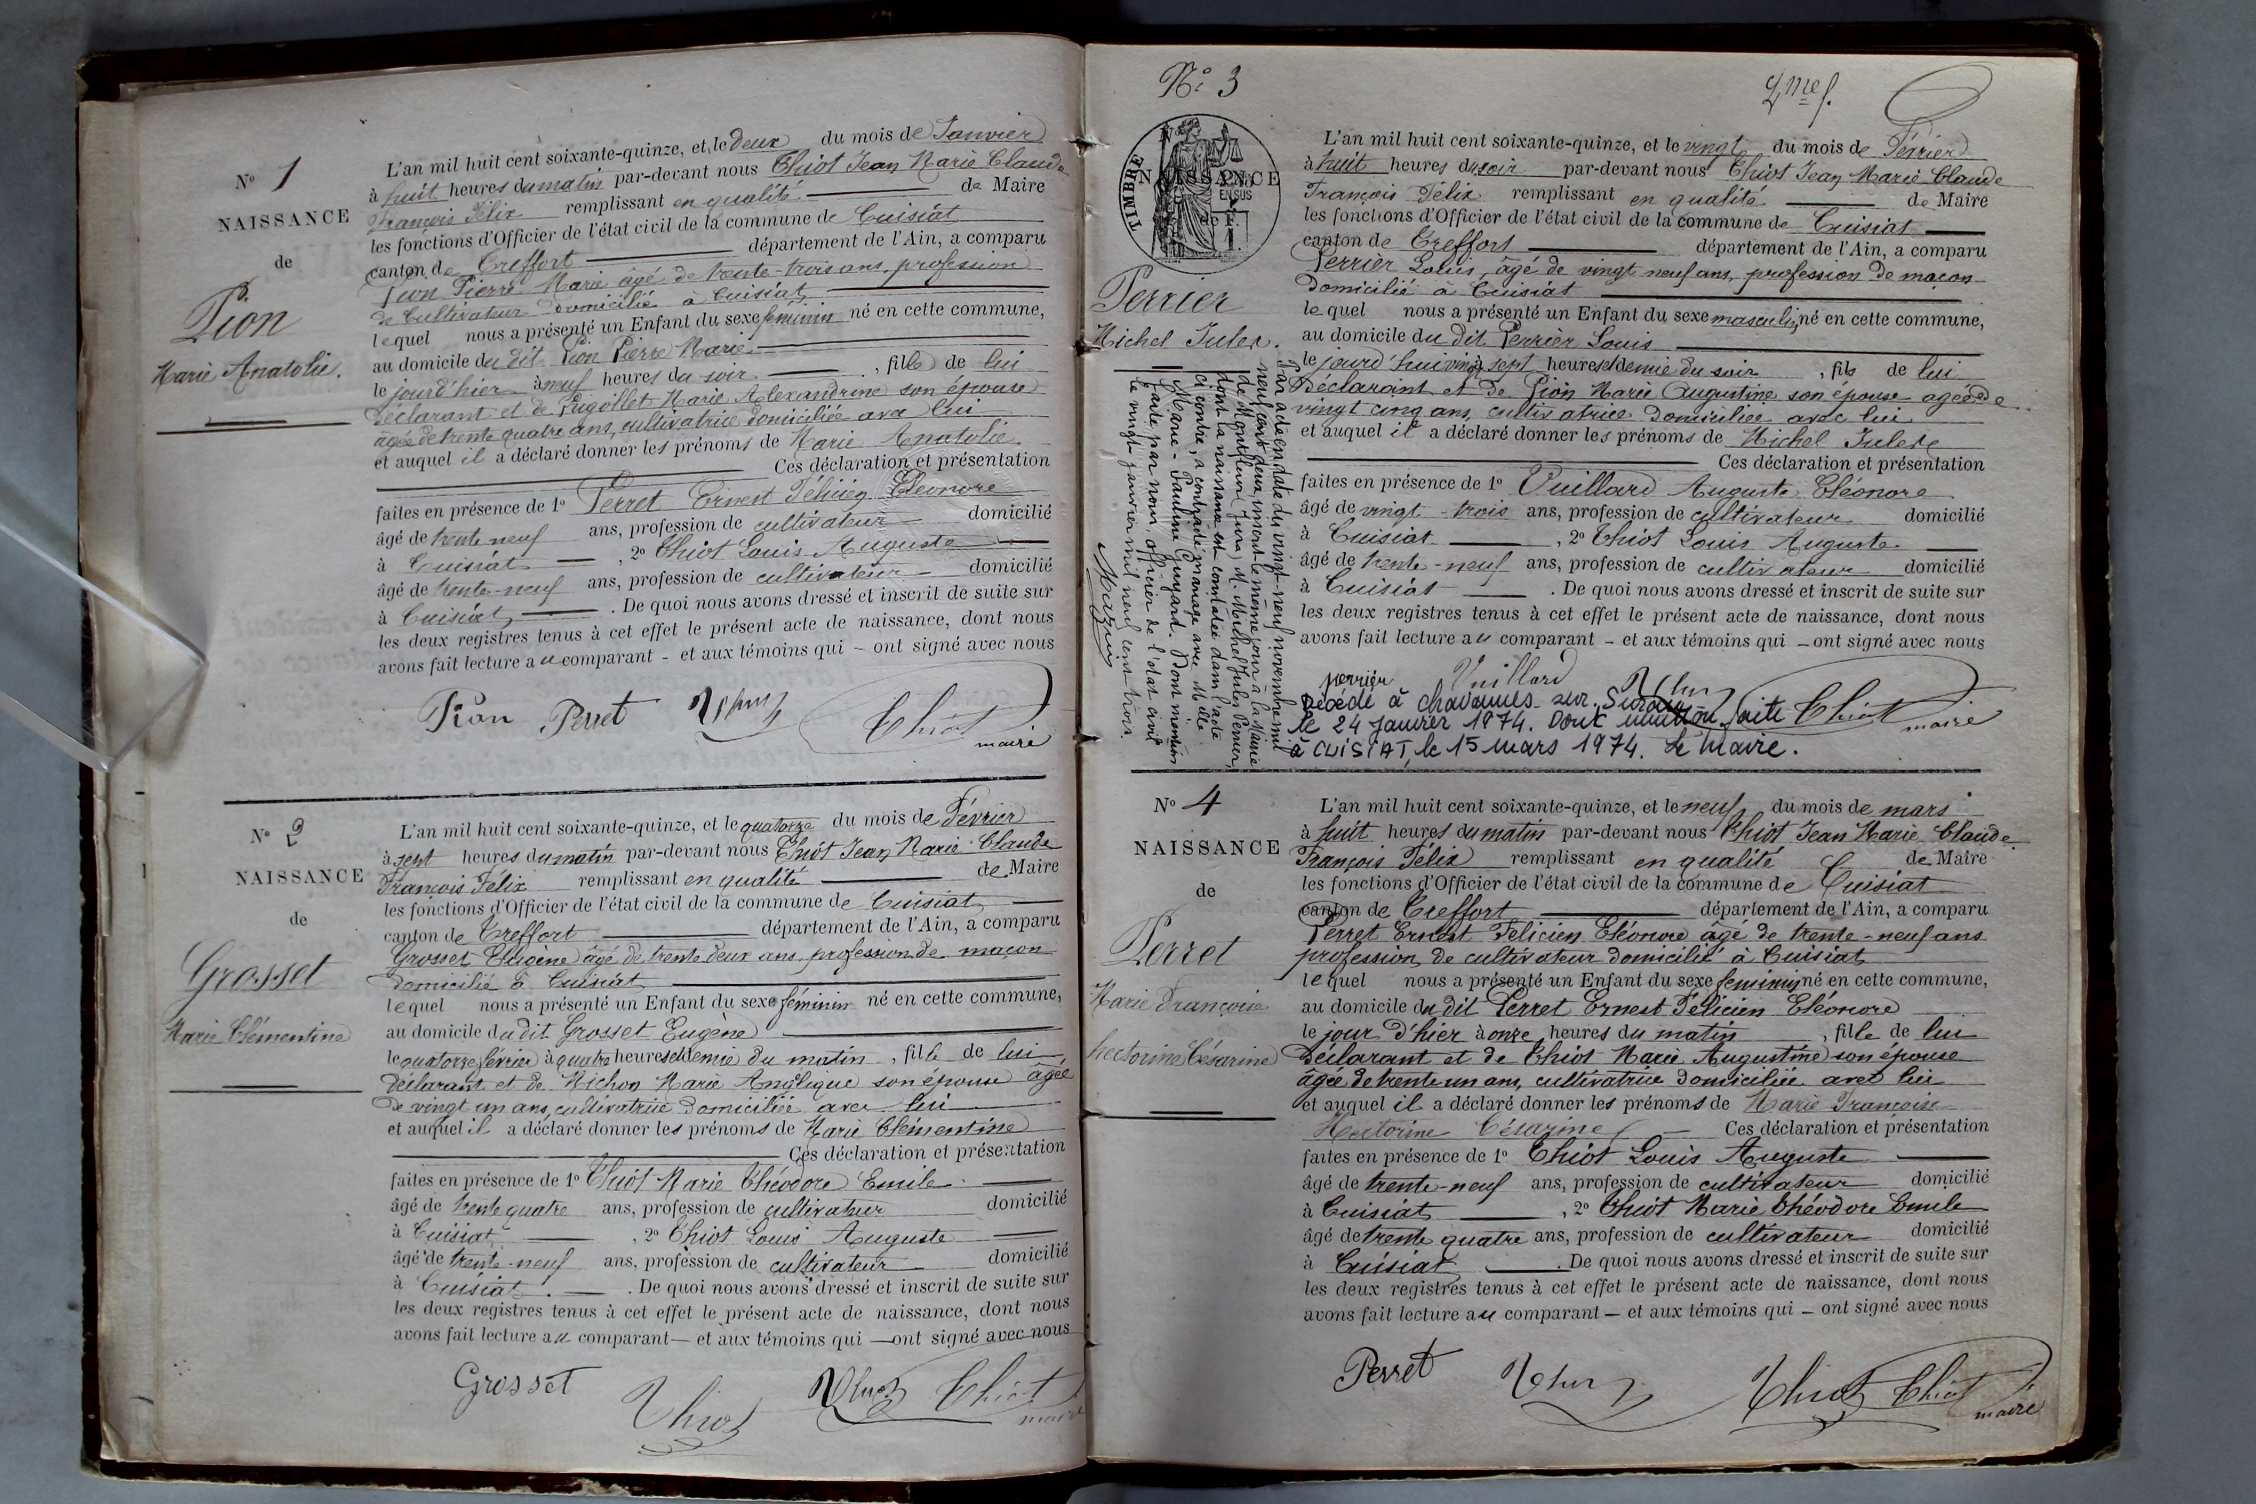 N° 1
NAISSANCE
de
Pion
Marie Anatolie.
L'an mil huit cent soixante-quinze, et le deux du mois de Janvier
à huit heures du matin par-devant nous Chiot Jean Marie Claude
François Félix remplissant en qualité de Maire
les fonctions d'Officier de l'état civil de la commune de Cuisiat
canton de Treffort département de l'Ain, a comparu
Pion Pierre Marie âgé de trente-trois ans, profession
de Cultivateur domicilié à Cuisiat
lequel nous a présenté un Enfant du sexe féminin né en cette commune,
au domicile du dit Pion Pierre Marie
le jourd'hier à neuf heures du soir, fille de lui
Déclarant et de Pugollet Marie Alexandrine son épouse
âgée de trente quatre ans, cultivatrice domiciliée avec lui
et auquel il a déclaré donner les prénoms de Marie Anatolie.
Ces déclaration et présentation
faites en présence de 1° Perret Ernest Félicien Eléonore
âgé de trente neuf ans, profession de cultivateur domicilié
à Cuisiat, 2° Chiot Louis Auguste
âgé de trente-neuf ans, profession de cultivateur domicilié
à Cuisiat. De quoi nous avons dressé et inscrit de suite sur
les deux registres tenus à cet effet le présent acte de naissance, dont nous
avons fait lecture au comparant - et aux témoins qui - ont signé avec nous
Pion Perret Chiot
maire
N° 2
NAISSANCE
de
Grosset
Marie Clémentine
L'an mil huit cent soixante-quinze, et le quatorze du mois de Février
à sept heures du matin par-devant nous Chiot Jean Marie Claude
François Félix remplissant en qualité de Maire
les fonctions d'Officier de l'état civil de la commune de Cuisiat
canton de Treffort département de l'Ain, a comparu
Grosset Eugène âgé de trente deux ans profession de maçon
domicilié à Cuisiat
lequel nous a présenté un Enfant du sexe féminin né en cette commune,
au domicile du dit Grosset Eugène
le quatorze février à quatre heures et demie du matin, fille de lui
déclarant et de Michon Marie Angélique son épouse âgée
de vingt un ans, cultivatrice domiciliée avec lui
et auquel il a déclaré donner les prénoms de Marie Clémentine
Ces déclaration et présentation
faites en présence de 1° Chiot Marie Théodore Emile
âgé de trente quatre ans, profession de cultivateur domicilié
à Cuisiat, 2° Chiot Louis Auguste
âgé de trente-neuf ans, profession de cultivateur domicilié
à Cuisiat. De quoi nous avons dressé et inscrit de suite sur
les deux registres tenus à cet effet le présent acte de naissance, dont nous
avons fait lecture au comparant — et aux témoins qui — ont signé avec nous
Grosset Chiot Chiot
maire
N° 3
2me f.
TIMBRE
NAISSANCE
EN SUS
Perrier
Michel Jules.
Par acte en date du vingt-neuf novembre mil
neuf cent deux, inscrit le même jour à la Mairie
de Montfleur (Jura) M. Michel Jules Perrier,
dont la naissance est constatée dans l'acte
ci contre, a contracté mariage avec Melle
Marie-Pauline Guyard. Dont mention
faite par nous officier de l'état civil
le vingt janvier mil neuf cent trois.
L'an mil huit cent soixante-quinze, et le vingt du mois de Février
à huit heures du soir par-devant nous Chiot Jean Marie Claude
François Félix remplissant en qualité de Maire
les fonctions d'Officier de l'état civil de la commune de Cuisiat
canton de Treffort département de l'Ain, a comparu
Perrier Louis, âgé de vingt neuf ans, profession de maçon
domicilié à Cuisiat
lequel nous a présenté un Enfant du sexe masculin né en cette commune,
au domicile du dit Perrier Louis
le jourd'hui vingt à sept heures et demie du soir, fils de lui
Déclarant et de Pion Marie Augustine son épouse agée de
vingt cinq ans, cultivatrice domiciliée avec lui
et auquel il a déclaré donner les prénoms de Michel Jules
Ces déclaration et présentation
faites en présence de 1° Vuillard Auguste Eléonore
âgé de vingt-trois ans, profession de cultivateur domicilié
à Cuisiat, 2° Chiot Louis Auguste.
âgé de trente-neuf ans, profession de cultivateur domicilié
à Cuisiat. De quoi nous avons dressé et inscrit de suite sur
les deux registres tenus à cet effet le présent acte de naissance, dont nous
avons fait lecture au comparant - et aux témoins qui - ont signé avec nous
perrier Vuillard Chiot
maire
Décédé à chavannes-sur-Suran
le 24 janvier 1974. Dont mention faite
à CUISIAT, le 15 mars 1974. Le Maire.
N° 4
NAISSANCE
de
Perret
Marie Françoise
hectorine Césarine
L'an mil huit cent soixante-quinze, et le neuf du mois de mars
à huit heures du matin par-devant nous Chiot Jean Marie Claude
François Félix remplissant en qualité de Maire
les fonctions d'Officier de l'état civil de la commune de Cuisiat
canton de Treffort département de l'Ain, a comparu
Perret Ernest Félicien Eléonore âgé de trente-neuf ans
profession de cultivateur domicilié à Cuisiat
lequel nous a présenté un Enfant du sexe feminin né en cette commune,
au domicile du dit Perret Ernest Félicien Eléonore
le jour d'hier à onze heures du matin, fille de lui
Déclarant et de Chiot Marie Augustine son épouse
âgée de trente un ans, cultivatrice domiciliée avec lui
et auquel il a déclaré donner les prénoms de Marie Françoise
Hectorine Césarine Ces déclaration et présentation
faites en présence de 1° Chiot Louis Auguste
âgé de trente-neuf ans, profession de cultivateur domicilié
à Cuisiat, 2° Chiot Marie Théodore Emile
âgé de trente quatre ans, profession de cultivateur domicilié
à Cuisiat. De quoi nous avons dressé et inscrit de suite sur
les deux registres tenus à cet effet le présent acte de naissance, dont nous
avons fait lecture au comparant — et aux témoins qui — ont signé avec nous
Perret Chiot Chiot
maire